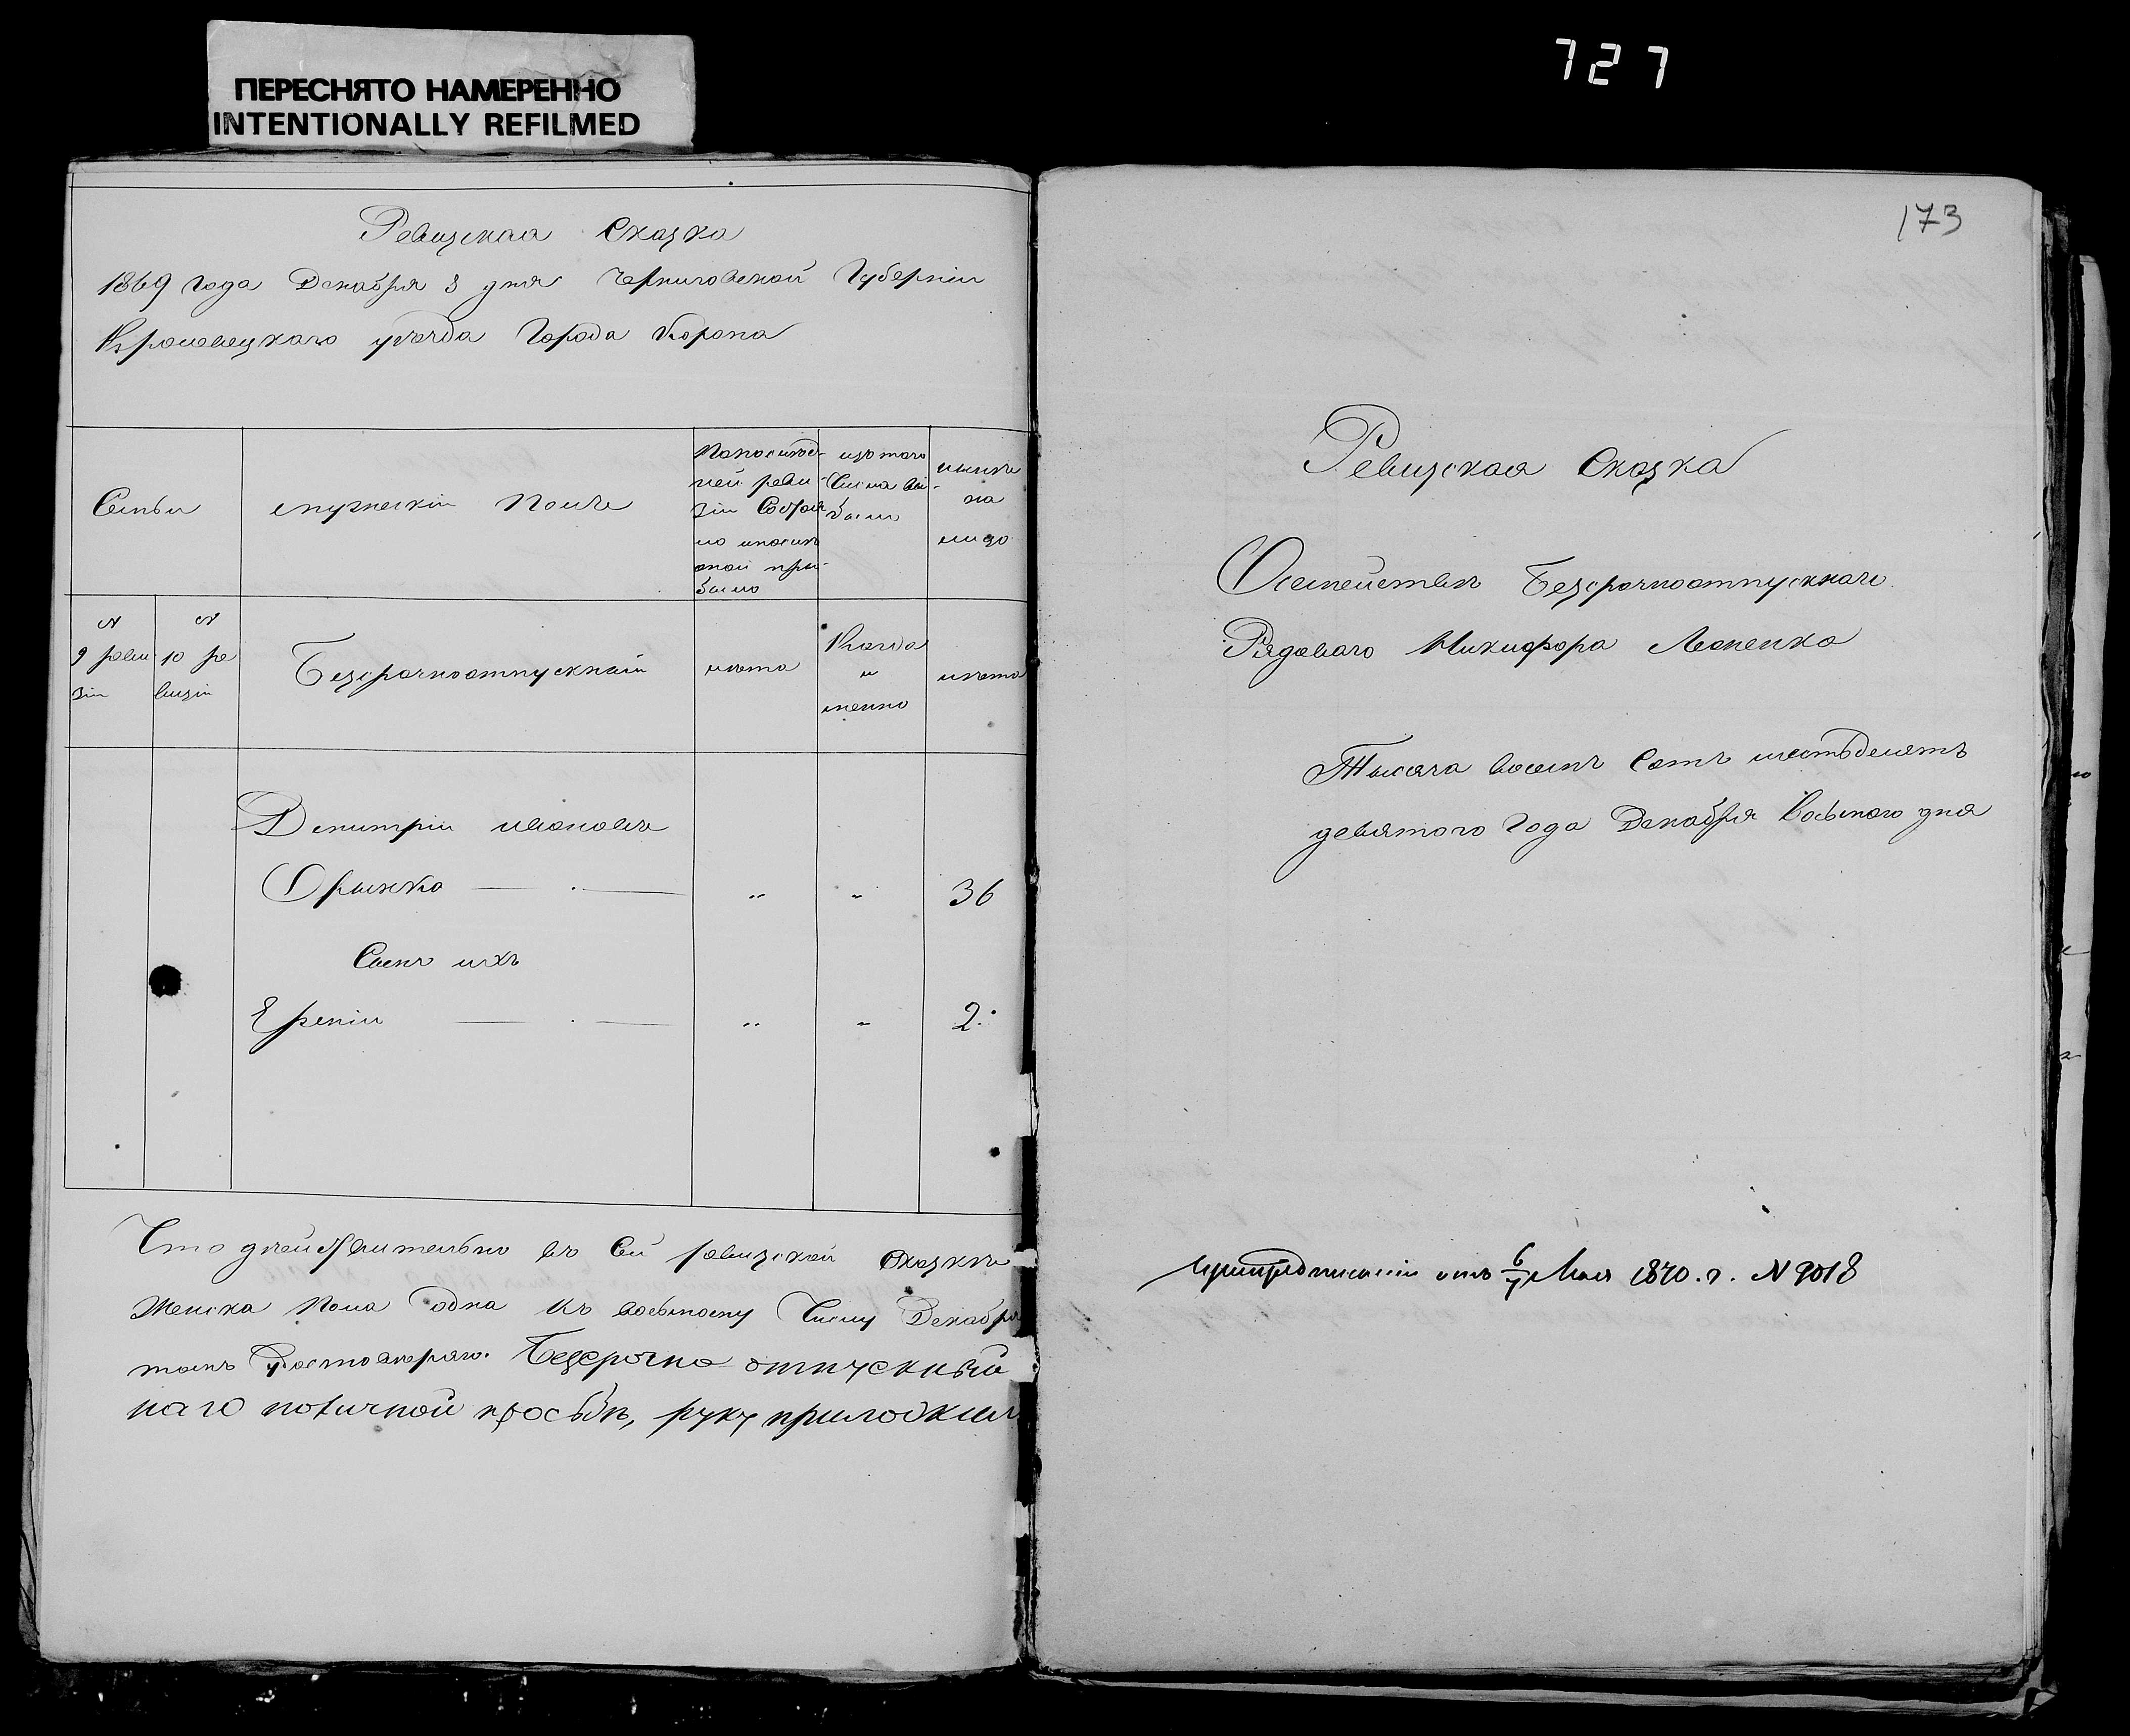 ПЕРЕСНЯТО НАМЕРЕННО
INTENTIONALLY REFILMED
727
Ревизская Сказка
1869 Года Декабря 8 дня Черниговской Губерніи
Кролевецкаго уѣзда Города Коропа
Семьи
мужескій Полъ
По послѣд-
ней реви-
зіи Состоя
ло и послѣ
оной при-
было
изъ того
Числа вы-
было
нынѣ
на
лицо
№
9 реви
зіи
№
10 ре
визіи
Безсрочноотпускный
лѣта
Когда
и
менно
лѣта
Дмитрій Ивановъ
36
Сынъ ихъ
2.
Что дѣйствительно въ сей ревизской Сказкѣ
Женска Пола одна къ восьмому Числу Декабря
томъ удостовѣряю. Безсрочно отпускный
наго по личной просьбѣ, руку приложилъ
173
Ревизская Сказка
О семействѣ Безсрочноотпускнаго
Рядоваго Никифора
Тысяча восемъ Сотъ шестьдесятъ
девятого Года Декабря Восьмого дня
При предписаніи отъ 6/7 Мая 1870. г. № 9018